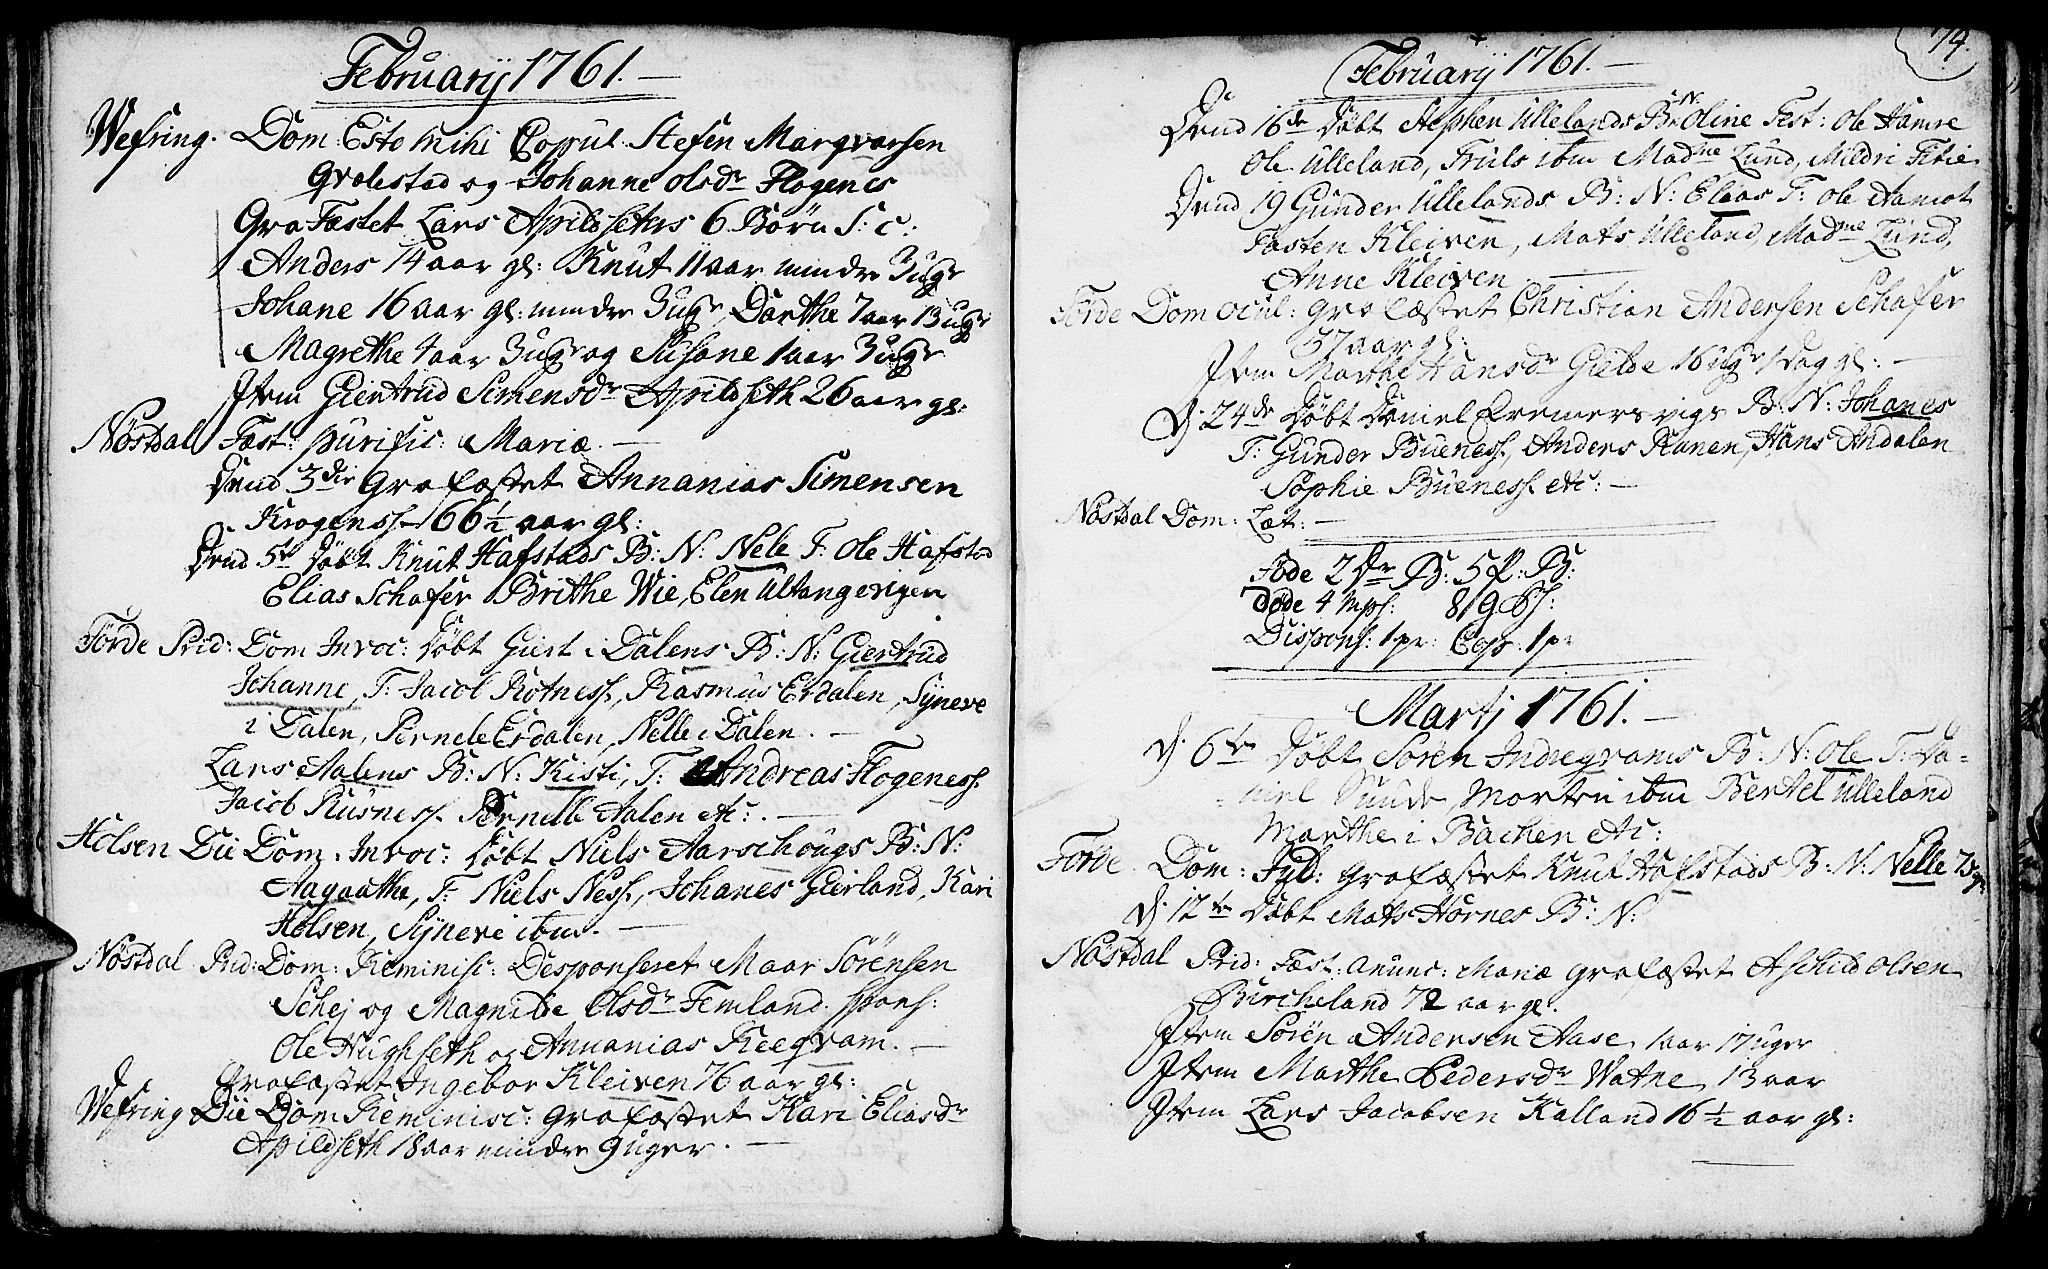 Februarij 1761. —
Wefring. Dom. Esto mihi Copul. Stefen Marqvarsen
Qvalestad og Johanne Olsdr Flogenes
Grafæstet Lars Apildsæters 6 Börn S: c:
Anders 14 aar gl: Knut 11 aar mindre 3 ugr
Johane 16 aar gl: mindre 3 ugr, Dorthe 7 aar 13 ugr
Magrethe 4 aar 3 ugr og Susane 1 aar 3 ugr
Item Giertrud Simensdr Apildseth 26 aar gl:
Nöstdal Fæst: purific: Mariæ. —
Dend 3die Grafæstet Annanias Simensen
Krogenss. 66 1/2 aar gl:
Dend 5te Döbt Knut Hafstads B: N: Nele F: Ole Hafstad
Elias Schafer Brithe Wie, Elen Ultangevigen
Förde Prid: Dom Invoc: Döbt Giert i Dalens B: N: Giertrud
Johanne, F: Jacob Rotness, Rasmus Erdalen, Syneve
i Dalen, Pernele Erdalen, Nelle i Dalen. —
Lars Aalens B: N: Kisti, F: Andreas Flogeness.
Jacob Rusness. Pernelle Aalen etc: . —
Holsen Die Dom. Invoc: Döbt Niels Aarschougs B: N:
Aagaathe, F: Niels Ness, Johanes Gierland, Kari
Holsen, Syneve ibm. —
Nöstdal Prid: Dom: Reminisc: Desponseret Maar Sörensen
Schej og Magnilde Olsdr Femland. spons:
Ole Hughseth og Annanias Reeqvam. —
Grafæstet Ingebor Kleiven 76 aar gl:
Wefring Die Dom Reminisc: Grafæstet Kari Eliasdr
Apildseth 18 aar mindre 9 uger. —
74.
Februarij 1761. —
Dend 16de Döbt Stephen Ullelands B: N: Oline Fest: Ole Hamre
Ole Ulleland, Truls ibm Madme Lund, Mildri Fitie
Dend 19 Gunder Ullelands B: N: Elaas F: Ole Aamot
Fasten Kleiven, Mats Ulleland, Madme Lund,
Anne Kleiven —
Förde Dom Ocul: Grafæstet Christian Andersen Schafer
57 aar gl:
Item Marthe Hansdr Gielde 16 ugr 1 Dag gl: —
D. 24de Döbt Daniel Eremersvigs B: N: Johanes
F: Gunder Bueness, Anders Ranen, Hans Andalen
Sophie Bueness. etc: —
Nöstdal Dom: Læt: —
Föde 2 Dr B: 5 P: B:
Döde 4 Mps: 8/9 Bs:
Dispons: 1 pr: Cop: 1 pr
Martj 1761. —
D. 6te Döbt Sören Indreqvams B: N: Ole F: Da-
niel Sunde Morten ibm Bertel Ulleland
Marthe i Bachen etc:
Förde. Dom: Jud: Grafæstet Knut Hafstads B: N: Nelle 7 ugr
D. 12te Döbt Mats Hornes B: N:
Nöstdal Prid: Fæst: Anunc: Mariæ Grafæstet Aschild Olsen
Bircheland 72 aar gl.
Item Sörön Andersen Aase 1 aar 17 uger
Item Marthe Pedersdr Watne 13 aar
Item Lars Jacobsen Kalland 16 1/2 aar gl: